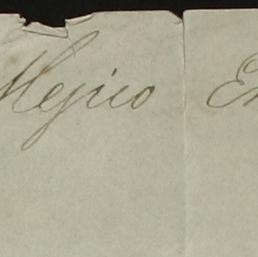 Mejico En